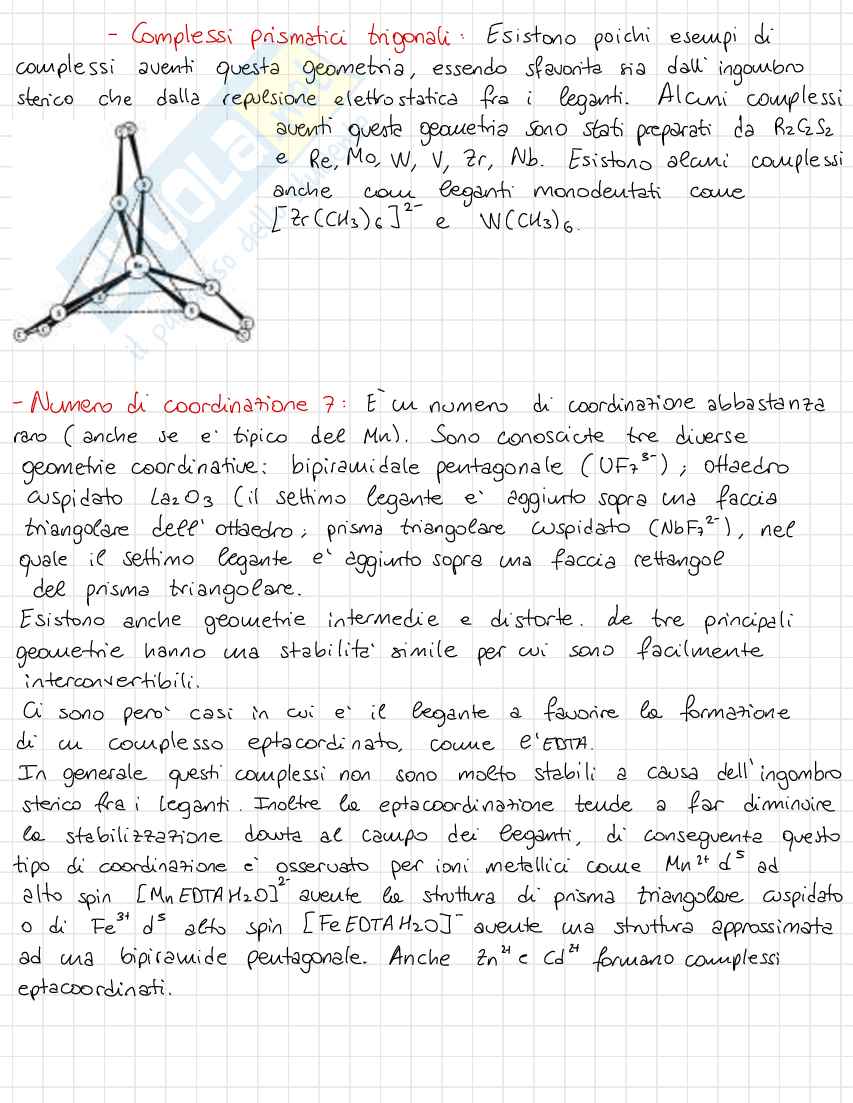 - Complessi prismatici trigonali: Esistono poichi esempi di
complessi aventi questa geometria, essendo sfavorita sia dall'ingombro
sterico che dalla repulsione elettrostatica fra i leganti. Alcuni complessi
aventi questa geometria sono stati preparati da R2C2S2
e Re, Mo, W, V, Zr, Nb. Esistono alcuni complessi
anche con leganti monodentati come
[Zr(CH3)6]²⁻ e W(CH3)6.
- Numero di coordinazione 7: È un numero di coordinazione abbastanza
raro (anche se e' tipico del Mn). Sono conosciute tre diverse
geometrie coordinative: bipiramidale pentagonale (UF7³⁻); ottaedro
cuspidato La2O3 (il settimo legante e' aggiunto sopra una faccia
triangolare dell'ottaedro; prisma triangolare cuspidato (NbF7²⁻), nel
quale il settimo legante e' aggiunto sopra una faccia rettangol
del prisma triangolare.
Esistono anche geometrie intermedie e distorte. Le tre principali
geometrie hanno una stabilita' simile per cui sono facilmente
interconvertibili.
Ci sono pero' casi in cui e' il legante a favorire la formazione
di un complesso eptacordinato, come l'EDTA.
In generale questi complessi non sono molto stabili a causa dell'ingombro
sterico fra i leganti. Inoltre la eptacoordinazione tende a far diminuire
la stabilizzazione dovuta al campo dei leganti, di conseguenza questo
tipo di coordinazione e' osservato per ioni metallici come Mn²⁺ d⁵ ad
alto spin [MnEDTAH2O]²⁻ avente la struttura di prisma triangolare cuspidato
o di Fe³⁺ d⁵ alto spin [FeEDTAH2O]⁻ avente una struttura approssimata
ad una bipiramide pentagonale. Anche Zn²⁺ e Cd²⁺ formano complessi
eptacoordinati.